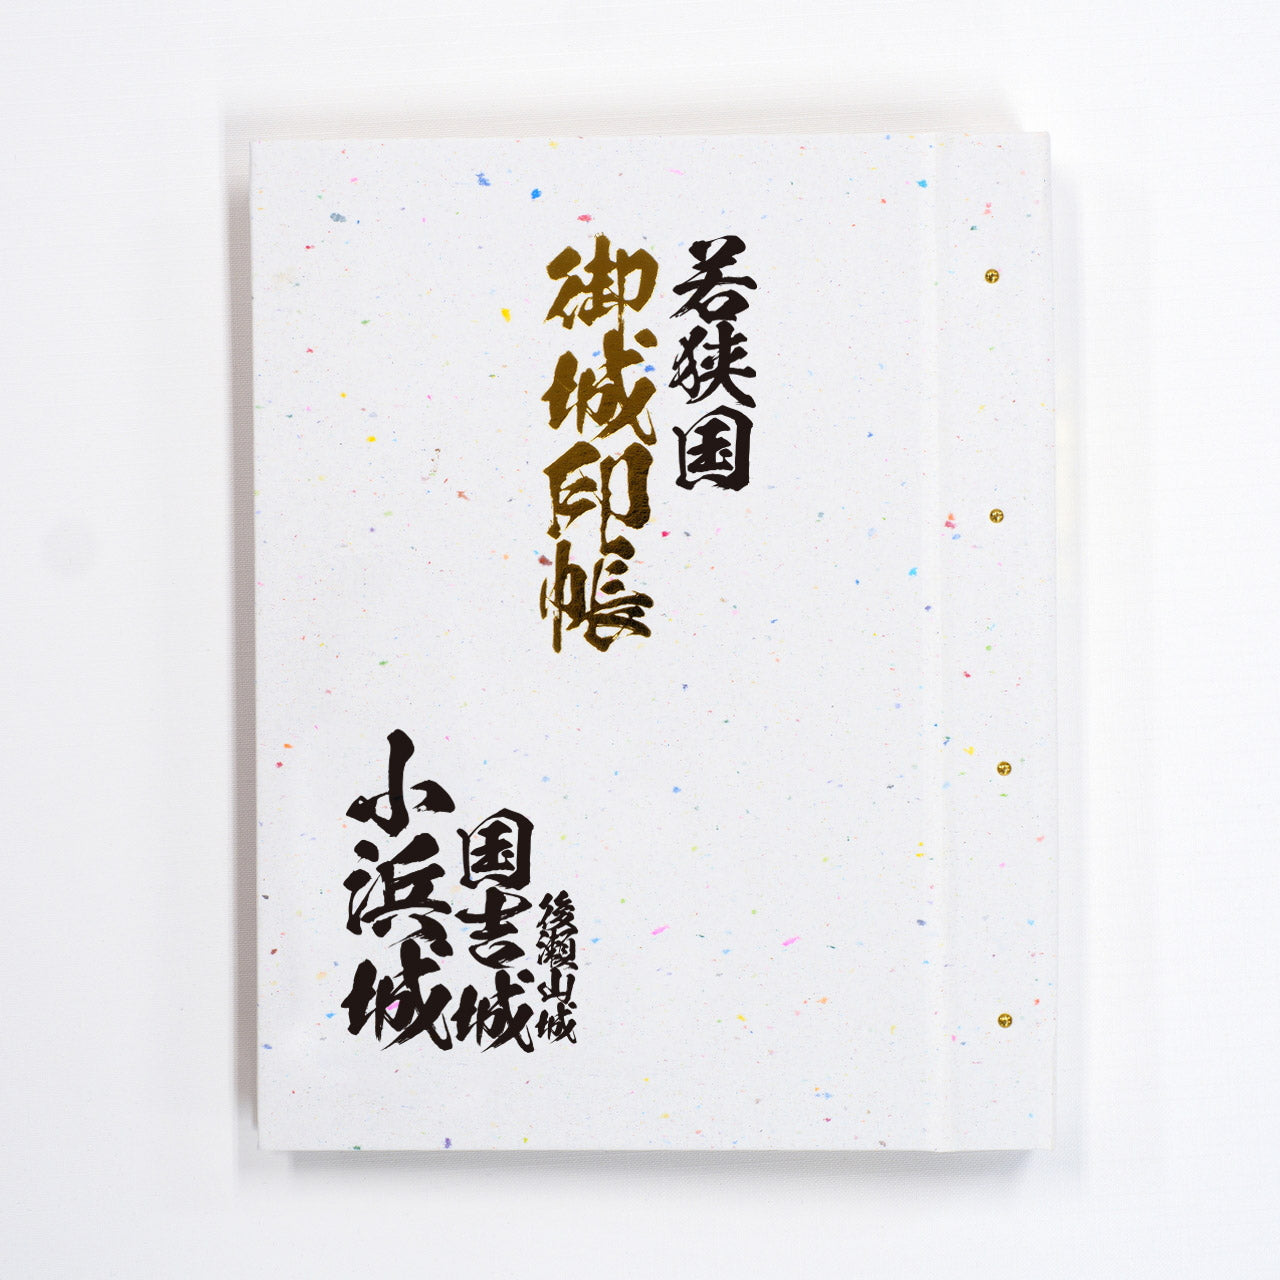 若狭国
御城印帳
後瀬山城
国吉城
小浜城